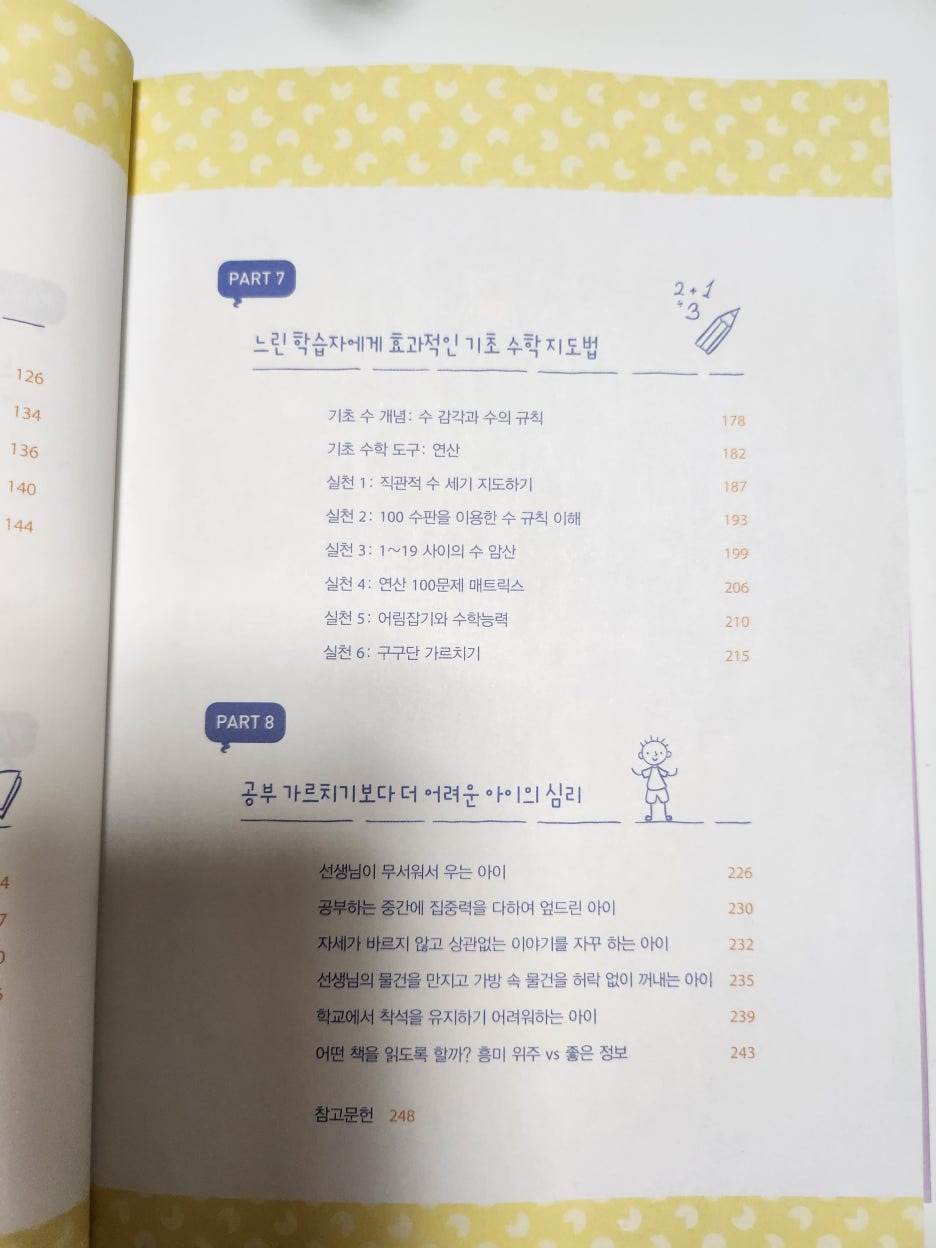 126
134
136
140
144
4
7
PART 7
2+1
÷3
느린 학습자에게 효과적인 기초 수학 지도법
기초 수 개념: 수 감각과 수의 규칙 178
기초 수학 도구: 연산 182
실천 1: 직관적 수 세기 지도하기 187
실천 2: 100 수판을 이용한 수 규칙 이해 193
실천 3: 1~19 사이의 수 암산 199
실천 4: 연산 100문제 매트릭스 206
실천 5: 어림잡기와 수학능력 210
실천 6: 구구단 가르치기 215
PART 8
공부 가르치기보다 더 어려운 아이의 심리
선생님이 무서워서 우는 아이 226
공부하는 중간에 집중력을 다하여 엎드린 아이 230
자세가 바르지 않고 상관없는 이야기를 자꾸 하는 아이 232
선생님의 물건을 만지고 가방 속 물건을 허락 없이 꺼내는 아이 235
학교에서 착석을 유지하기 어려워하는 아이 239
어떤 책을 읽도록 할까? 흥미 위주 vs 좋은 정보 243
참고문헌 248